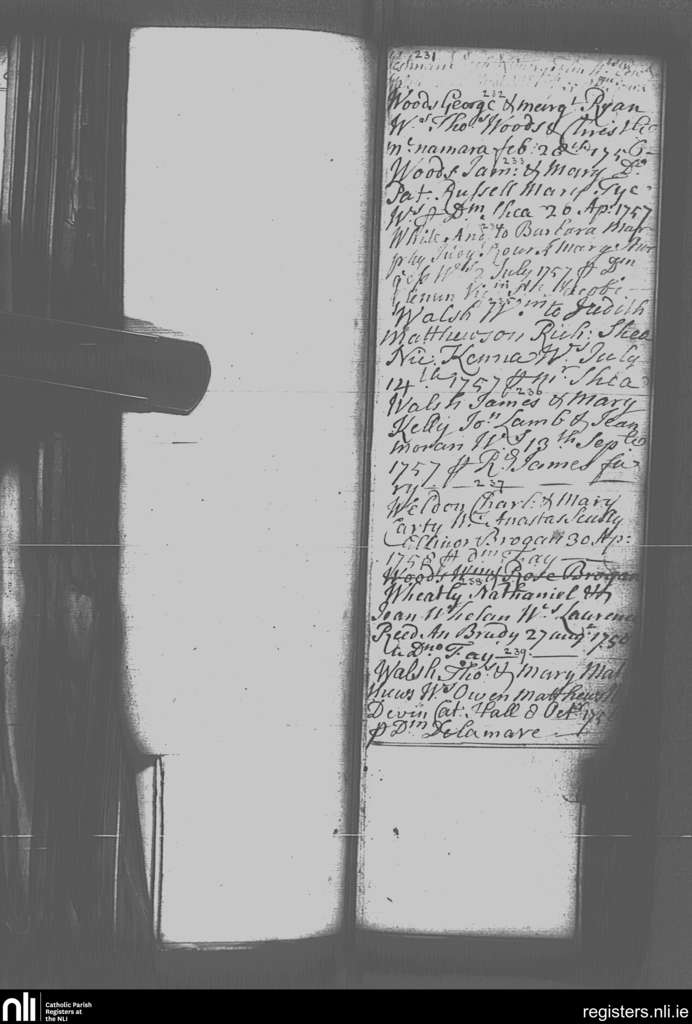 231
232
Woods George & marg.t Ryan
W.s Tho.s Woods & Christ.
m.c namara feb: 28th 175
233
Woods Jam: & Mary D.o
Pat. Russell Mary Tye
W.s p Dm Shea 20 Ap: 1757
234
White And to Barbara Mur
phy Rour & marg Bur
W.s 2 July 1757 p Dm
235
Walsh W.m to Judith
Matthewson Rich: Shea
Nic: Kenna W.s July
14th 1757 p m.r Shea
236
Walsh James & Mary
Kelly Jo.n Lamb & Jean
moran W.s 13th Sep
1757 p R.d James fu
ry
237
Weldon Charl: & Mary
Carty W.s Anastas Scully
Ellinor Brogan 30 Ap:
1758 p dm Fay
Woods W.m & Rose Brogan
238
Wheatly Nathaniel &
Joan Whelan W.s Laurenc
Reed An Brady 27 aug.t 1758
D.no Fay
239
Walsh Tho.s & Mary Mat
thews W.s Owen Matthews
Devin Cat: Hall 8 Oct.r 175
p Dm Delamare
nli
Catholic Parish
Registers at
the NLI
registers.nli.ie